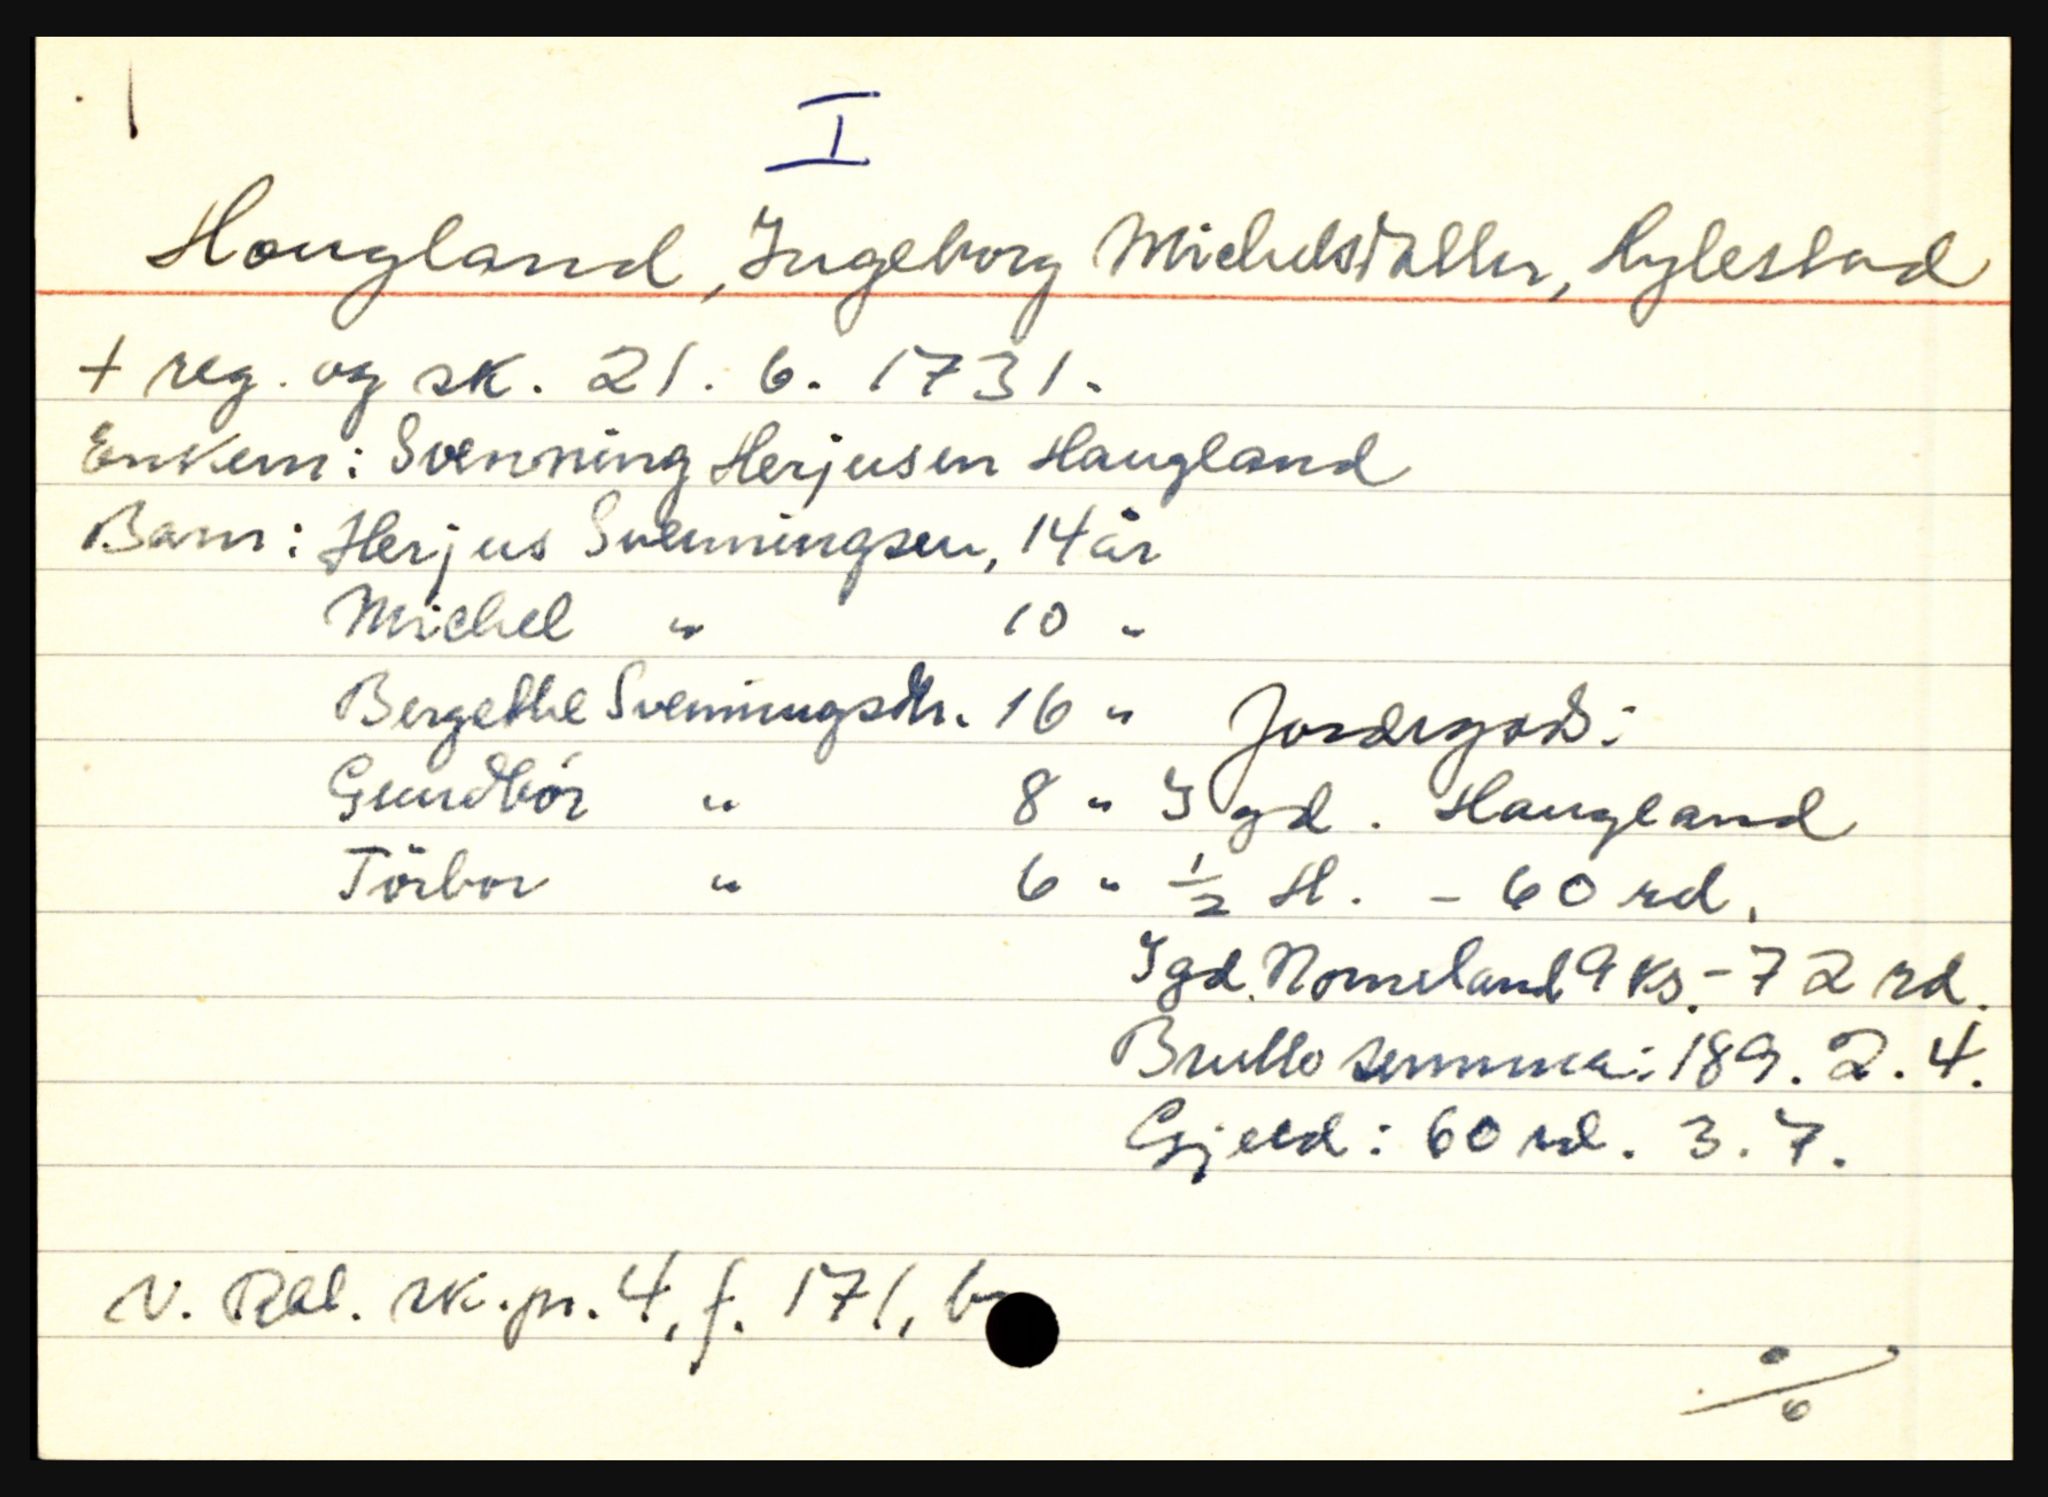 I
Hougland, Ingeborg Michelsdatter, Hylestad
+ reg. og sk. 21. 6. 1731.
Enkem: Svenning Herjusen Haugland
Barn: Herjus Svenningsen, 14 år
Michel " 10 "
Bergethe Svenningsdtr. 16 " Jordegods:
Gundbór " 8 " I gd. Haugland
Törbor " 6 " 1/2 H. - 60 rd.
I gd. Nomeland 9 ks. - 72 rd.
Brutto summa: 189. 2. 4.
Gjeld: 60 rd. 3. 7.
N. Rbl. sk. pr. 4, f. 171, b